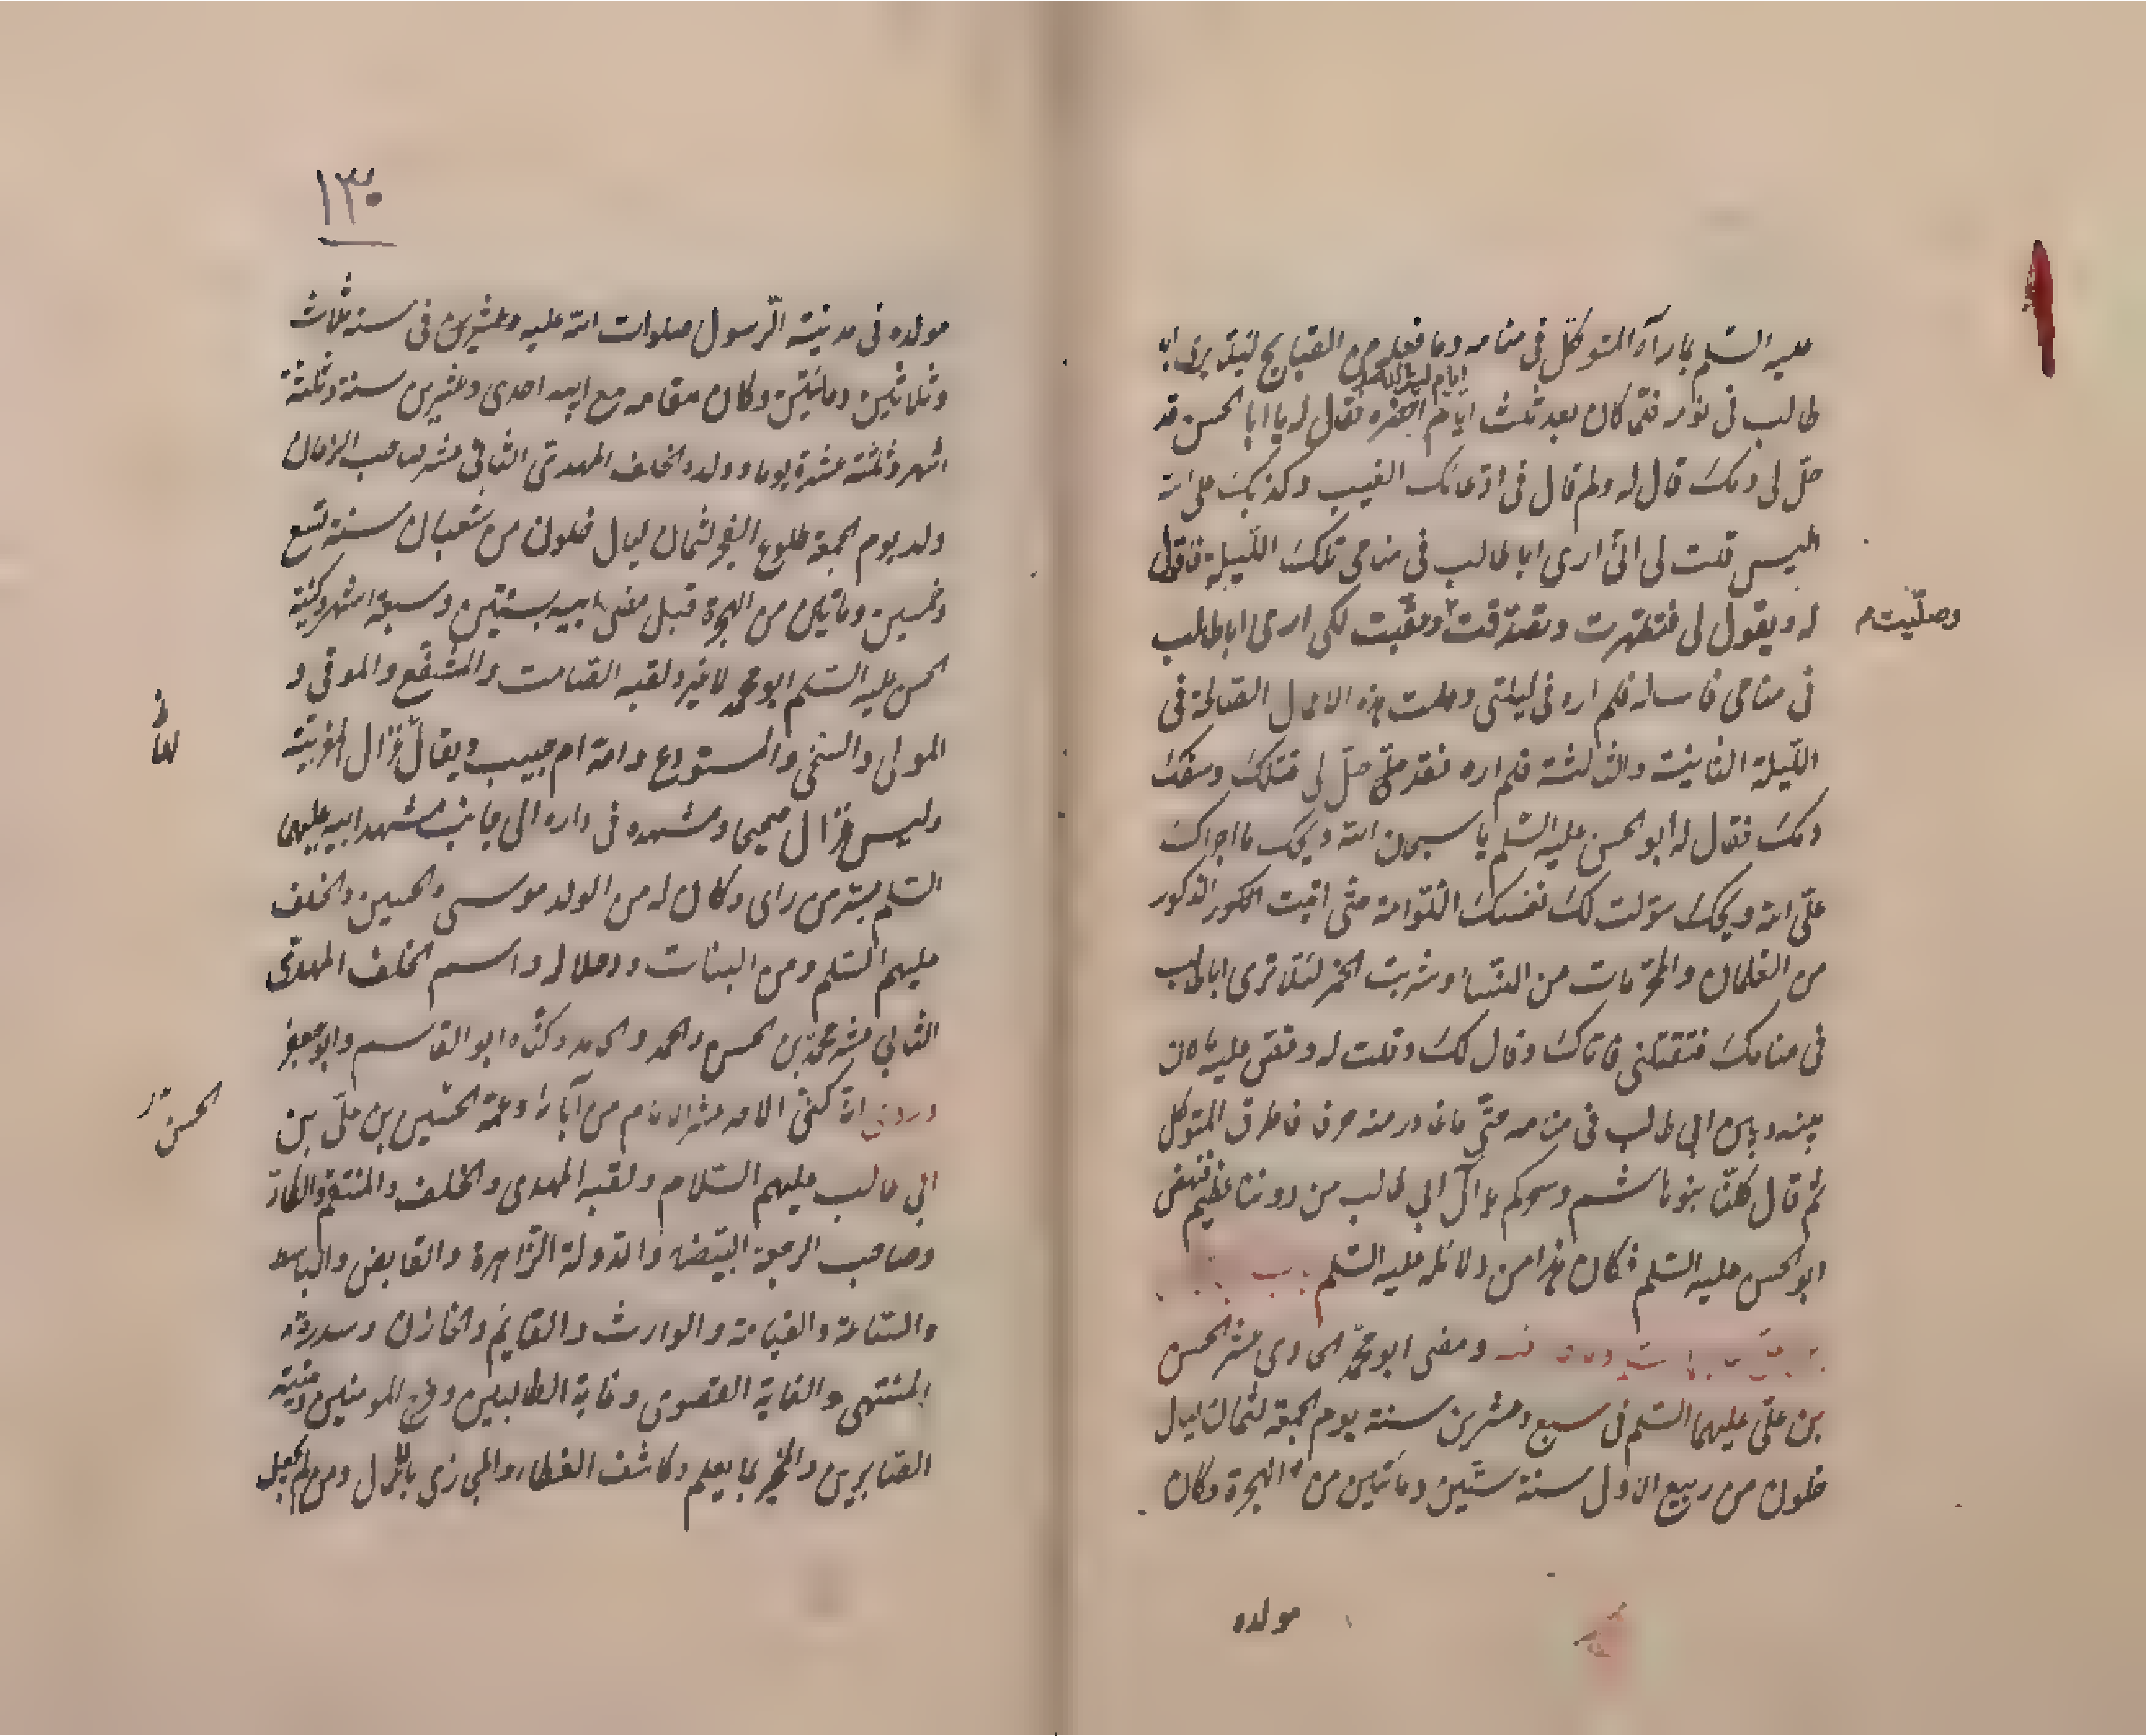 عليه السّلم بما رآه المتوكّل في منامه وما فعله من القبايح ليلة يرى ابا
طالب في نومه فلمّا كان بعد ثلث ايّام احضره فقال له يا ابا الحسن قد
حلّ لي دمك قال له ولم قال في ادّعائك الغيب وكذبك على الله
اليس قلت لي انّي ارى ابا طالب في منامي تلك اللّيلة فاقول
له ويقول لي فتطهّرت وتصدّقت وعقّبت لكي ارى ابا طالب
وصلّيت
في منامي فاساله فلم اره في ليلتي وعملت هذه الاعمال الصّالحة في
اللّيلة الثانية والثالثة فلم اره فقد حلّ لي قتلك وسفك
دمك فقال له أبو الحسن عليه السّلم يا سبحان الله ويحك ما اجراك
على الله ويحك سوّلت لك نفسك اللّوامة حتّى اتيت الذكور
من الغلمان والمحرّمات من النّساء وشربت الخمر لئلّا ترى ابا طالب
في منامك فتقتلني فاتاك وقال لك وقلت له وقصّ عليه ما كان
بينه وبين ابي طالب في منامه حتّى ما غادر منه حرفا فاطرق المتوكل
ثم قال كلّنا بنو هاشم وسحركم يا آل ابي طالب من دوننا عظيم فنهض
ابو الحسن عليه السّلم فكان هذا من دلائله عليه السّلم
ومضى ابو محمّد الحادي عشر الحسن
بن عليّ عليهما السّلم في سبع وعشرين سنة يوم الجمعة لثمان ليال
خلون من ربيع الاول سنة ستّين ومأتين من الهجرة وكان
مولده
١٣٠
مولده في مدينة الرّسول صلوات الله عليه في سنة ثلاث
وثلاثين ومائتين وكان مقامه مع ابيه احدى وعشرين سنة وثلثة
اشهر وثلثة عشرة يوما وولده الخلف المهدي الثاني عشر صاحب الزمان
ولد يوم الجمعة طلوع الفجر لثمان ليال خلون من شعبان سنة تسع
وخمسين ومأتين من الهجرة قبل مضي ابيه بسنتين وسبعة اشهر وكنية
الحسن عليه السّلم ابو محمّد لا غير ولقبه الصّامت والشفيع والموفي و
المولى والسخي والمستودع وامه ام حبيب ويقال غزال المغربيّة
وليس غزال صحيحا ومشهده في داره الى جانب مشهد ابيه عليهما
السّلم بسرّ من راى وكان له من الولد موسى والحسين والخلف
عليهم السّلم ومن البنات واسم الخلف المهديّ
الثاني عشر محمّد بن الحسن واحمد والحامد وكناه ابو القاسم وابو جعفر
وروي انّ كنى الاحد عشر الامام من آبائه وعمّه الحسين بن عليّ بن
الحسن
ابي طالب عليهم السّلام ولقبه المهدي والخلف والمنتقم
وصاحب الرجعة البيضاء والدولة الزّاهرة والقابض والباسط
والسّاعة والقيامة والوارث والقايم والخازن وسدرة
المنتهى والغاية القصوى وغاية الطالبين وفرج المومنين ومنية
الصّابرين والمخبر بما يعلم وكاشف الغطاء والمجازي بالاعمال ومن لم يجعل